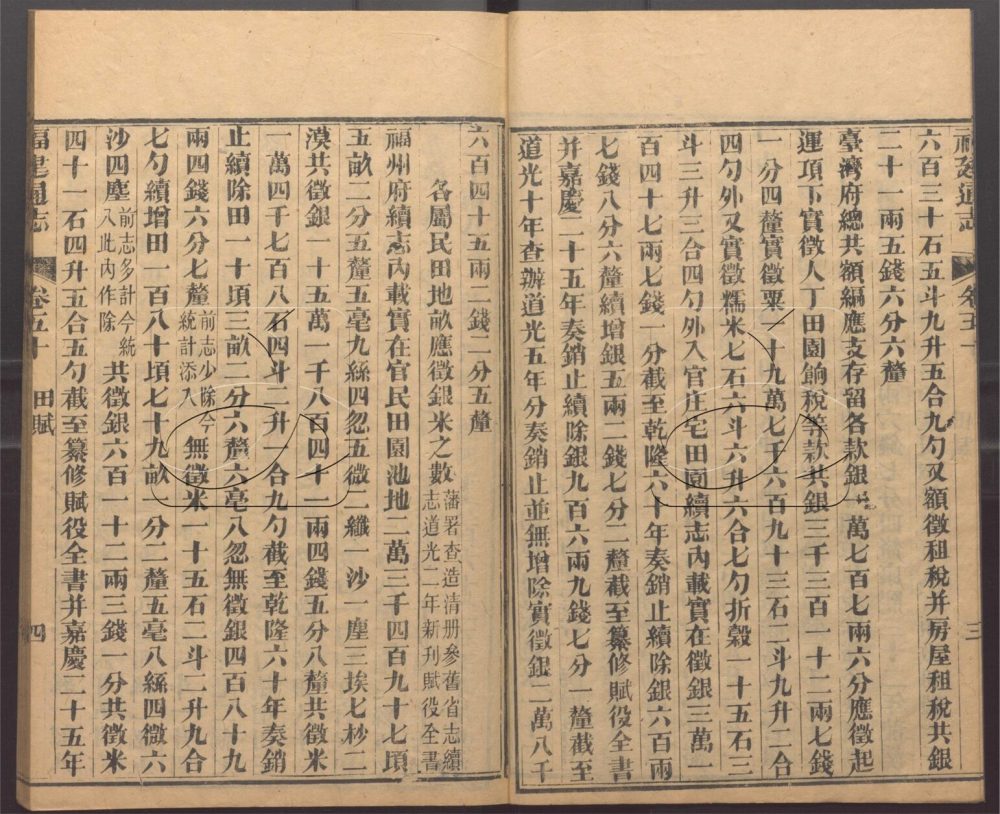 福建通志 卷五十 三
六百三十石五斗九升五合九勺又額徵租稅并房屋租稅共銀
二十一兩五錢六分六釐
臺灣府總共額編應支存留各款銀一萬七百七兩六分應徵起
運項下實徵人丁田園餉稅等款共銀三千三百一十二兩七錢
一分四釐實徵粟一十九萬七千六百九十三石二斗九升二合
四勺外又實徵糯米七石六斗六升六合七勺折穀一十五石三
斗三升三合四勺外入官庄宅田園續志內載實在徵銀三萬一
百四十七兩七錢一分截至乾隆六十年奏銷止續除銀六百兩
七錢八分六釐續增銀五兩二錢七分二釐截至纂修賦役全書
并嘉慶二十五年奏銷止續除銀九百六兩九錢七分一釐截至
道光十年查辦道光五年分奏銷止並無增除實徵銀二萬八千
六百四十五兩二錢二分五釐
各屬民田地畝應徵銀米之數藩署查造清册參舊省志續志道光二年新刊賦役全書
福州府續志內載實在官民田園池地二萬三千四百九十七頃
五畝二分五釐五毫九絲四忽五微二纖一沙一塵三埃七杪二
漠共徵銀一十五萬一千八百四十一兩四錢五分八釐共徵米
一萬四千七百八石四斗二升一合九勺截至乾隆六十年奏銷
止續除田一十頃三畝二分六釐六毫八忽無徵銀四百八十九
兩四錢六分七釐前志少除今統計添入無徵米一十五石二斗二升九合
七勺續增田一百八十頃七十九畝一分二釐五毫八絲四微六
沙四塵前志多計今統入此內作除共徵銀六百一十二兩三錢一分共徵米
四十一石四升五合五勺截至纂修賦役全書并嘉慶二十五年
福建通志 卷五十 田賦 四